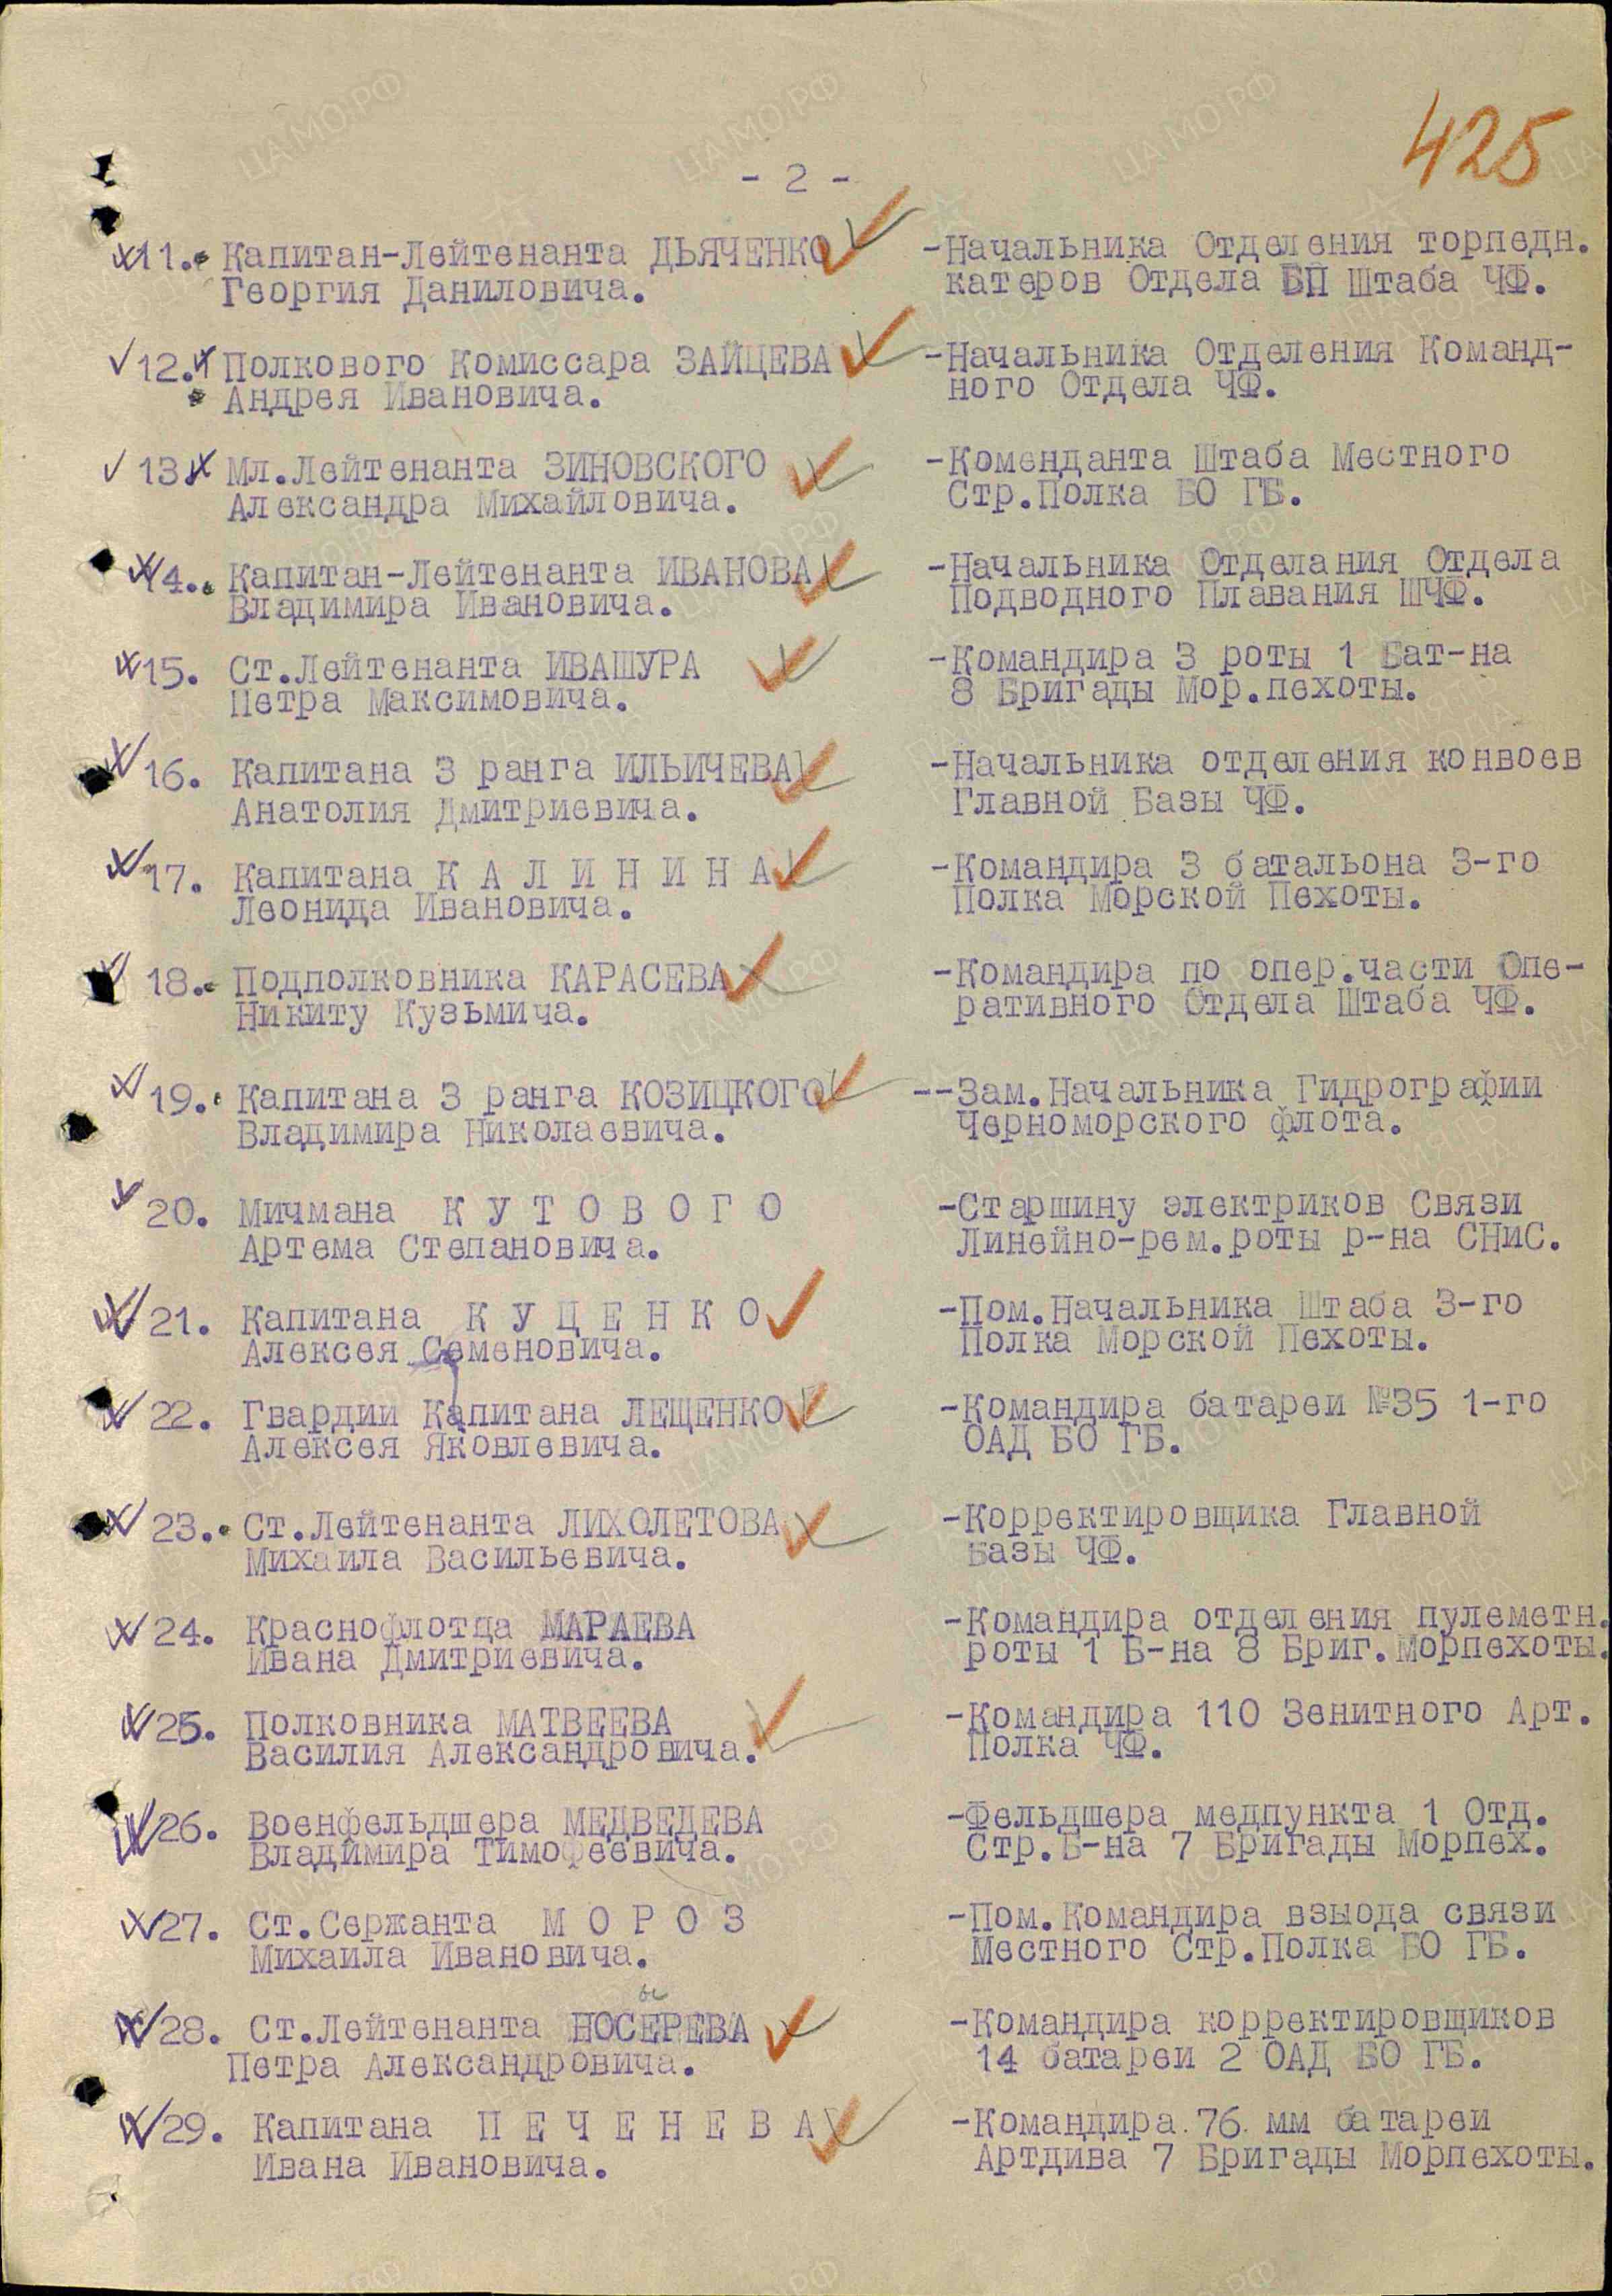 425
- 2 -
11. Капитан-Лейтенанта ДЬЯЧЕНКО -Начальника Отделения торпедн.
Георгия Даниловича. катеров Отдела БП Штаба ЧФ.
12. Полкового Комиссара ЗАЙЦЕВА -Начальника Отделения Команд-
Андрея Ивановича. ного Отдела ЧФ.
13. Мл.Лейтенанта ЗИНОВСКОГО -Коменданта Штаба Местного
Александра Михайловича. Стр.Полка БО ГБ.
14. Капитан-Лейтенанта ИВАНОВА -Начальника Отделания Отдела
Владимира Ивановича. Подводного Плавания ШЧФ.
15. Ст.Лейтенанта ИВАШУРА -Командира 3 роты 1 Бат-на
Петра Максимовича. 8 Бригады Мор.пехоты.
16. Капитана 3 ранга ИЛЬИЧЕВА -Начальника отделения конвоев
Анатолия Дмитриевича. Главной Базы ЧФ.
17. Капитана К А Л И Н И Н А -Командира 3 батальона 3-го
Леонида Ивановича. Полка Морской Пехоты.
18. Подполковника КАРАСЕВА -Командира по опер.части Опе-
Никиту Кузьмича. ративного Отдела Штаба ЧФ.
19. Капитана 3 ранга КОЗИЦКОГО --Зам.Начальника Гидрографии
Владимира Николаевича. Черноморского флота.
20. Мичмана К У Т О В О Г О -Старшину электриков Связи
Артема Степановича. Линейно-рем.роты р-на СНиС.
21. Капитана К У Ц Е Н К О -Пом.Начальника Штаба 3-го
Алексея Семеновича. Полка Морской Пехоты.
22. Гвардии Капитана ЛЕЩЕНКО -Командира батареи №35 1-го
Алексея Яковлевича. ОАД БО ГБ.
23. Ст.Лейтенанта ЛИХОЛЕТОВА -Корректировщика Главной
Михаила Васильевича. Базы ЧФ.
24. Краснофлотца МАРАЕВА -Командира отделения пулеметн.
Ивана Дмитриевича. роты 1 Б-на 8 Бриг.Морпехоты.
25. Полковника МАТВЕЕВА -Командира 110 Зенитного Арт.
Василия Александровича. Полка ЧФ.
26. Военфельдшера МЕДВЕДЕВА -Фельдшера медпункта 1 Отд.
Владимира Тимофеевича. Стр.Б-на 7 Бригады Морпех.
27. Ст.Сержанта М О Р О З -Пом.Командира взыода связи
Михаила Ивановича. Местного Стр.Полка БО ГБ.
28. Ст.Лейтенанта НОСЕРЕВА -Командира корректировщиков
Петра Александровича. 14 батареи 2 ОАД БО ГБ.
29. Капитана П Е Ч Е Н Е В А -Командира 76 мм батареи
Ивана Ивановича. Артдива 7 Бригады Морпехоты.